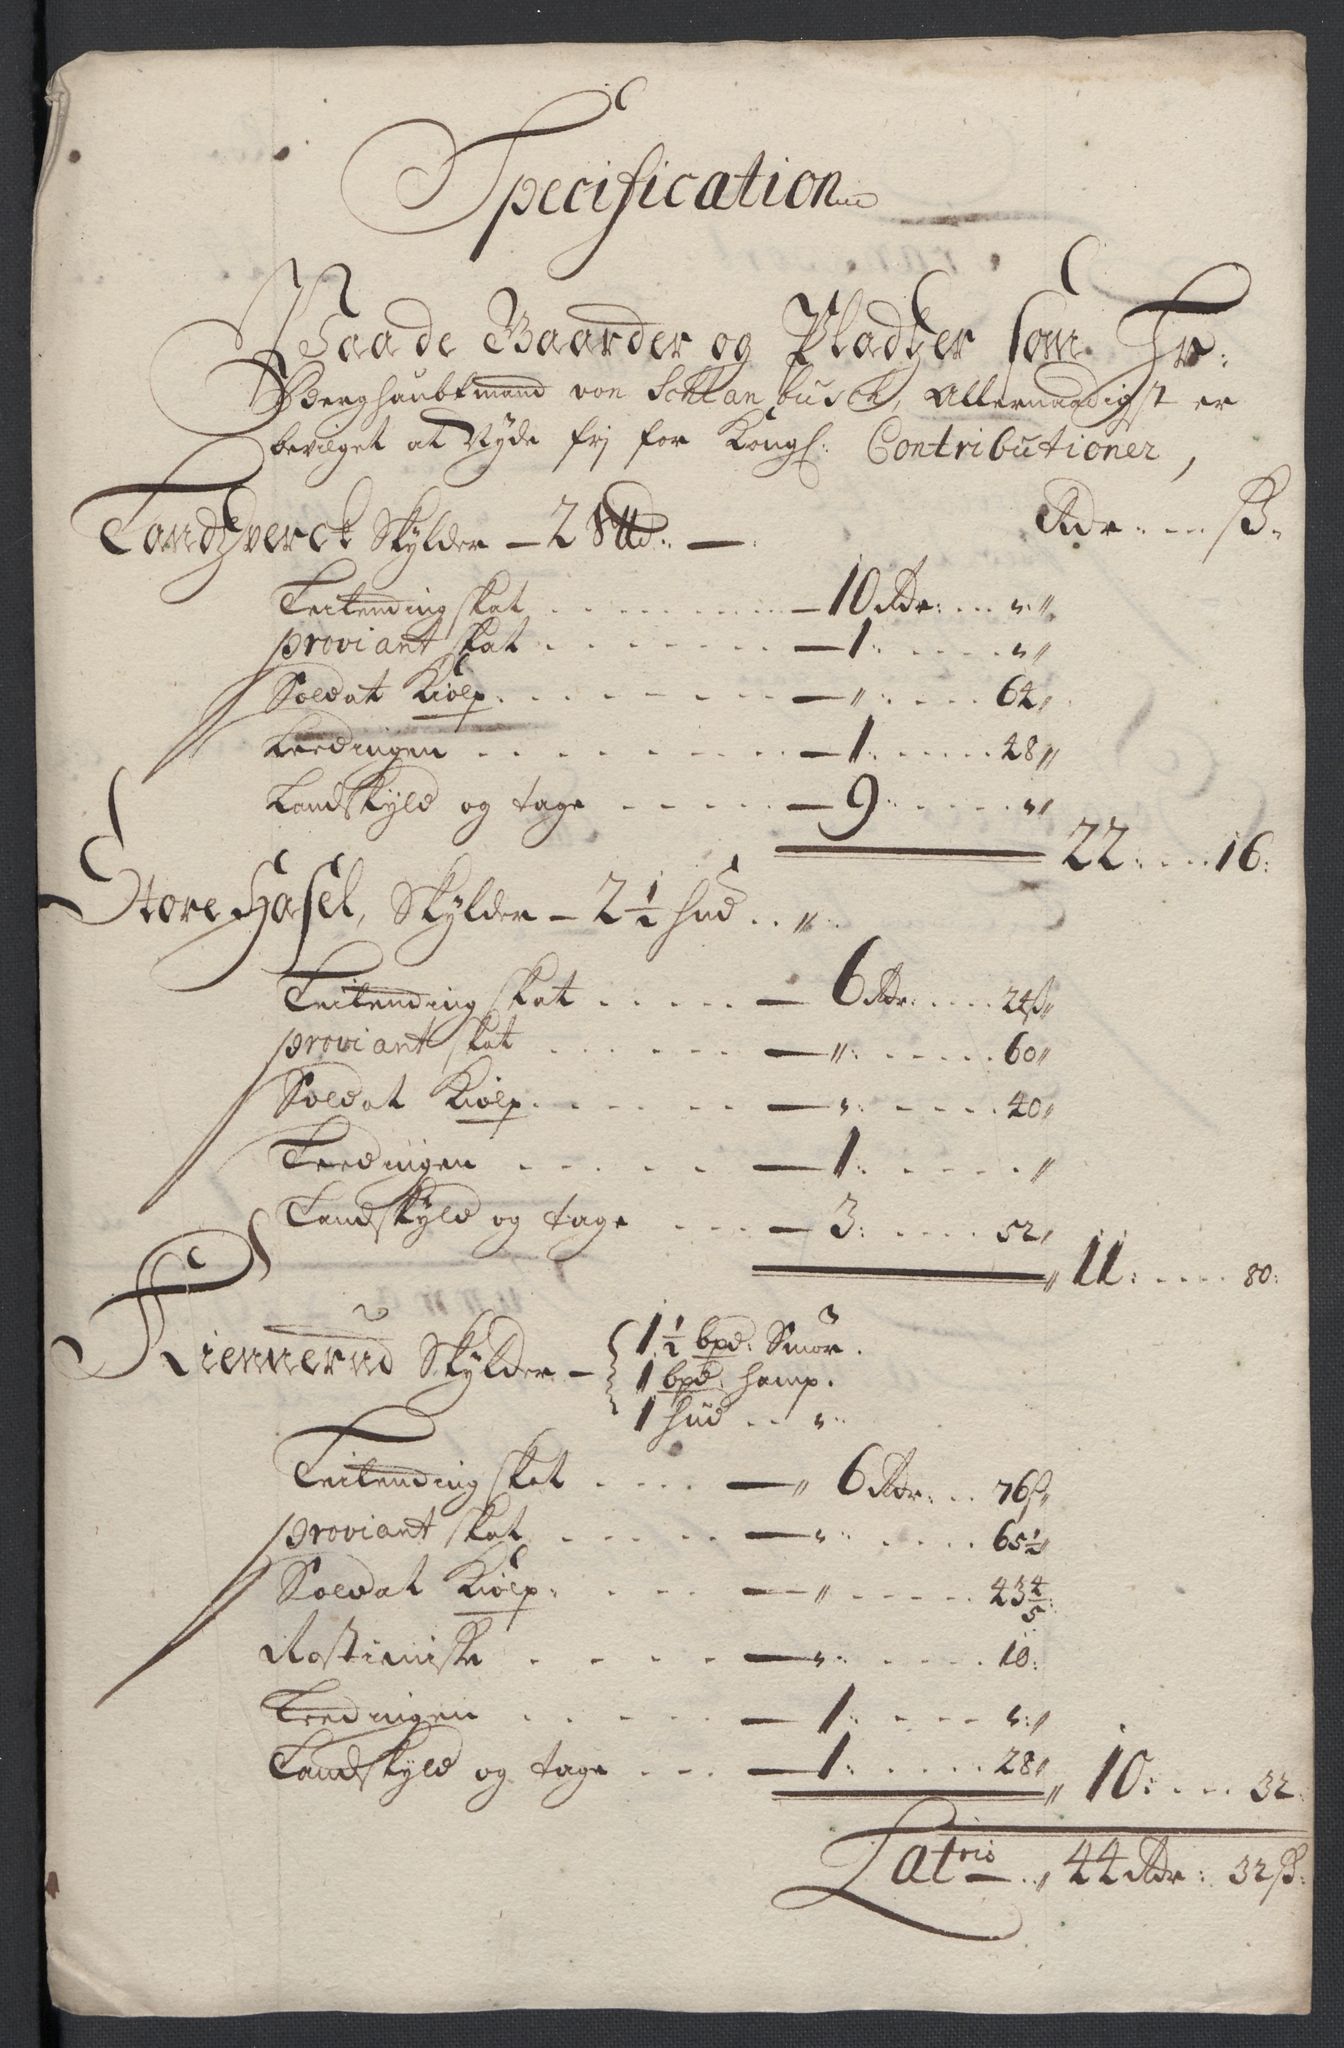 Specification
Paa de Gaarder og Pladtzer som Hr:
Berghaubtmand von Schlanbusch, Allernaadigst er
bevilget at Nyde frj for Kongl: Contributioner,
Rdr: ß:
Fondtzverck Skylder — 2 Skd: —
Leilending skat — 10 Rdr: „
proviant skat — 1: „
Soldat Kiole — „: 64„
Leedingen — 1: 48„
Landskyld og tage — 9: „
22: 16:
Store Hasel, Skylder — 2½ hud „
Leilending skat — 6 Rdr: 24ß„
proviant skat — „: 60„
Soldat Kiole — „: 40„
Leedingen — 1: „
Landskyld og tage — 3: 52„
„ 11: 80:
Kiennerud Skylder — 1½ bpd: Smör.
1 bpd: hamp.
1 hud „
Leilending skat — „ 6 Rdr: 76ß„
proviant skat — „: 65½
Soldat Kiole — „ 43 4/5:
Rostieniste — „: 10:
Leedingen — 1: „
Landskyld og tage — 1: 28„
„ 10: 32:
Latris „ 44 Rdr: 32ß: